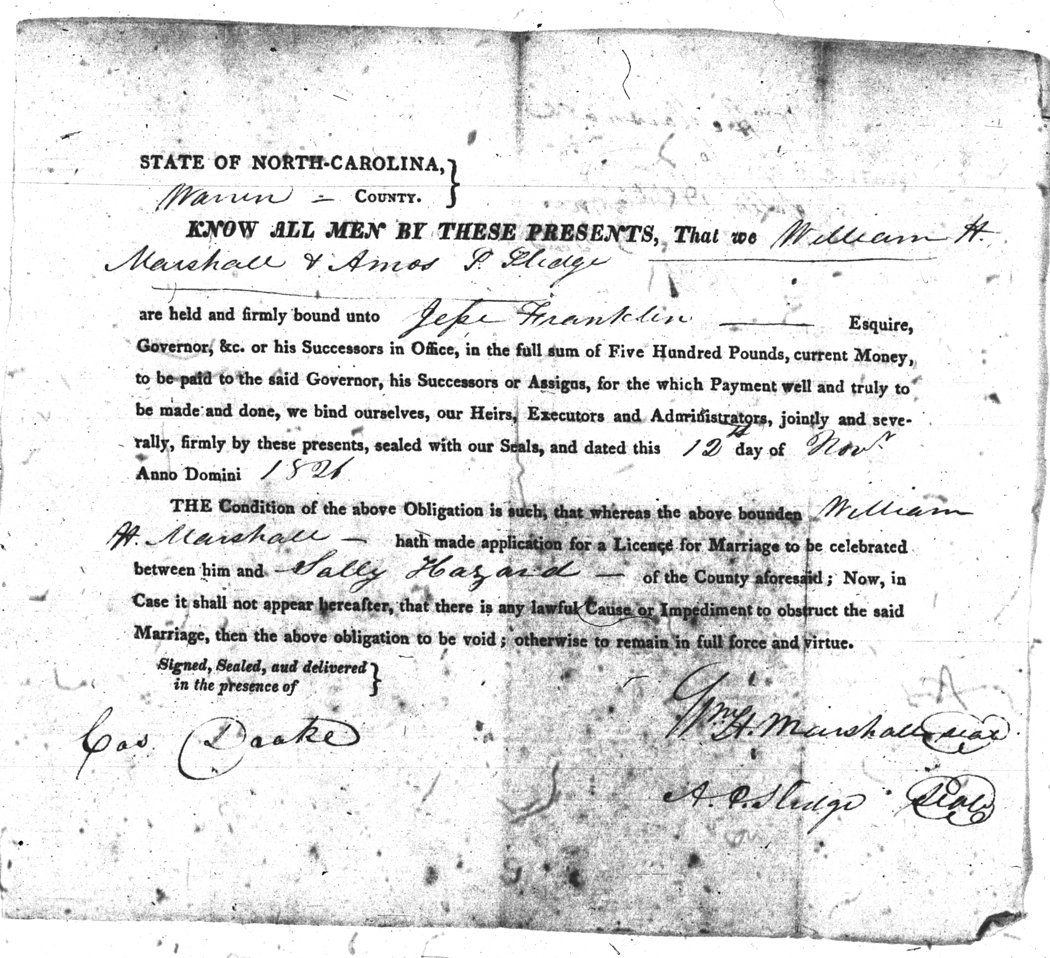 STATE OF NORTH-CAROLINA, }
Warren = COUNTY.
KNOW ALL MEN BY THESE PRESENTS, That we William H.
Marshall & Amos P. Sledge
are held and firmly bound unto Jesse Franklin — Esquire,
Governor, &c. or his Successors in Office, in the full sum of Five Hundred Pounds, current Money,
to be paid to the said Governor, his Successors or Assigns, for the which Payment well and truly to
be made and done, we bind ourselves, our Heirs, Executors and Administrators, jointly and seve-
rally, firmly by these presents, sealed with our Seals, and dated this 12th day of Novr
Anno Domini 1821
THE Condition of the above Obligation is such, that whereas the above bounden William
H. Marshall — hath made application for a Licence for Marriage to be celebrated
between him and — Sally Hazard — of the County aforesaid; Now, in
Case it shall not appear hereafter, that there is any lawful Cause or Impediment to obstruct the said
Marriage, then the above obligation to be void; otherwise to remain in full force and virtue.
Signed, Sealed, aud delivered }
in the presence of
Cas Draake
Wm H. Marshall seal
A. P. Sledge seal